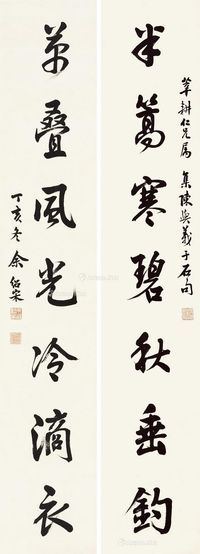 耕仁兄属 集陳與義于石句
半篙寒碧秋垂釣
萬叠風光冷滴衣
丁亥冬余紹宋